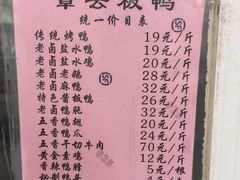 章云板鸭
统一价目表
传统烤鸭 19元/斤
老卤盐水鸭 19元/斤
老卤盐水鸡 20元/斤
老卤老鹅 28元/斤
老卤麻鸭 32元/斤
特色酱板鸭 32元/斤
老卤鸭肫
五香鸭翅
五香鸭爪 24元/斤
五香干切牛肉 70元/斤
黄金素鸡 12元/斤
香辣鸭脖 5元/根
秘制鸭